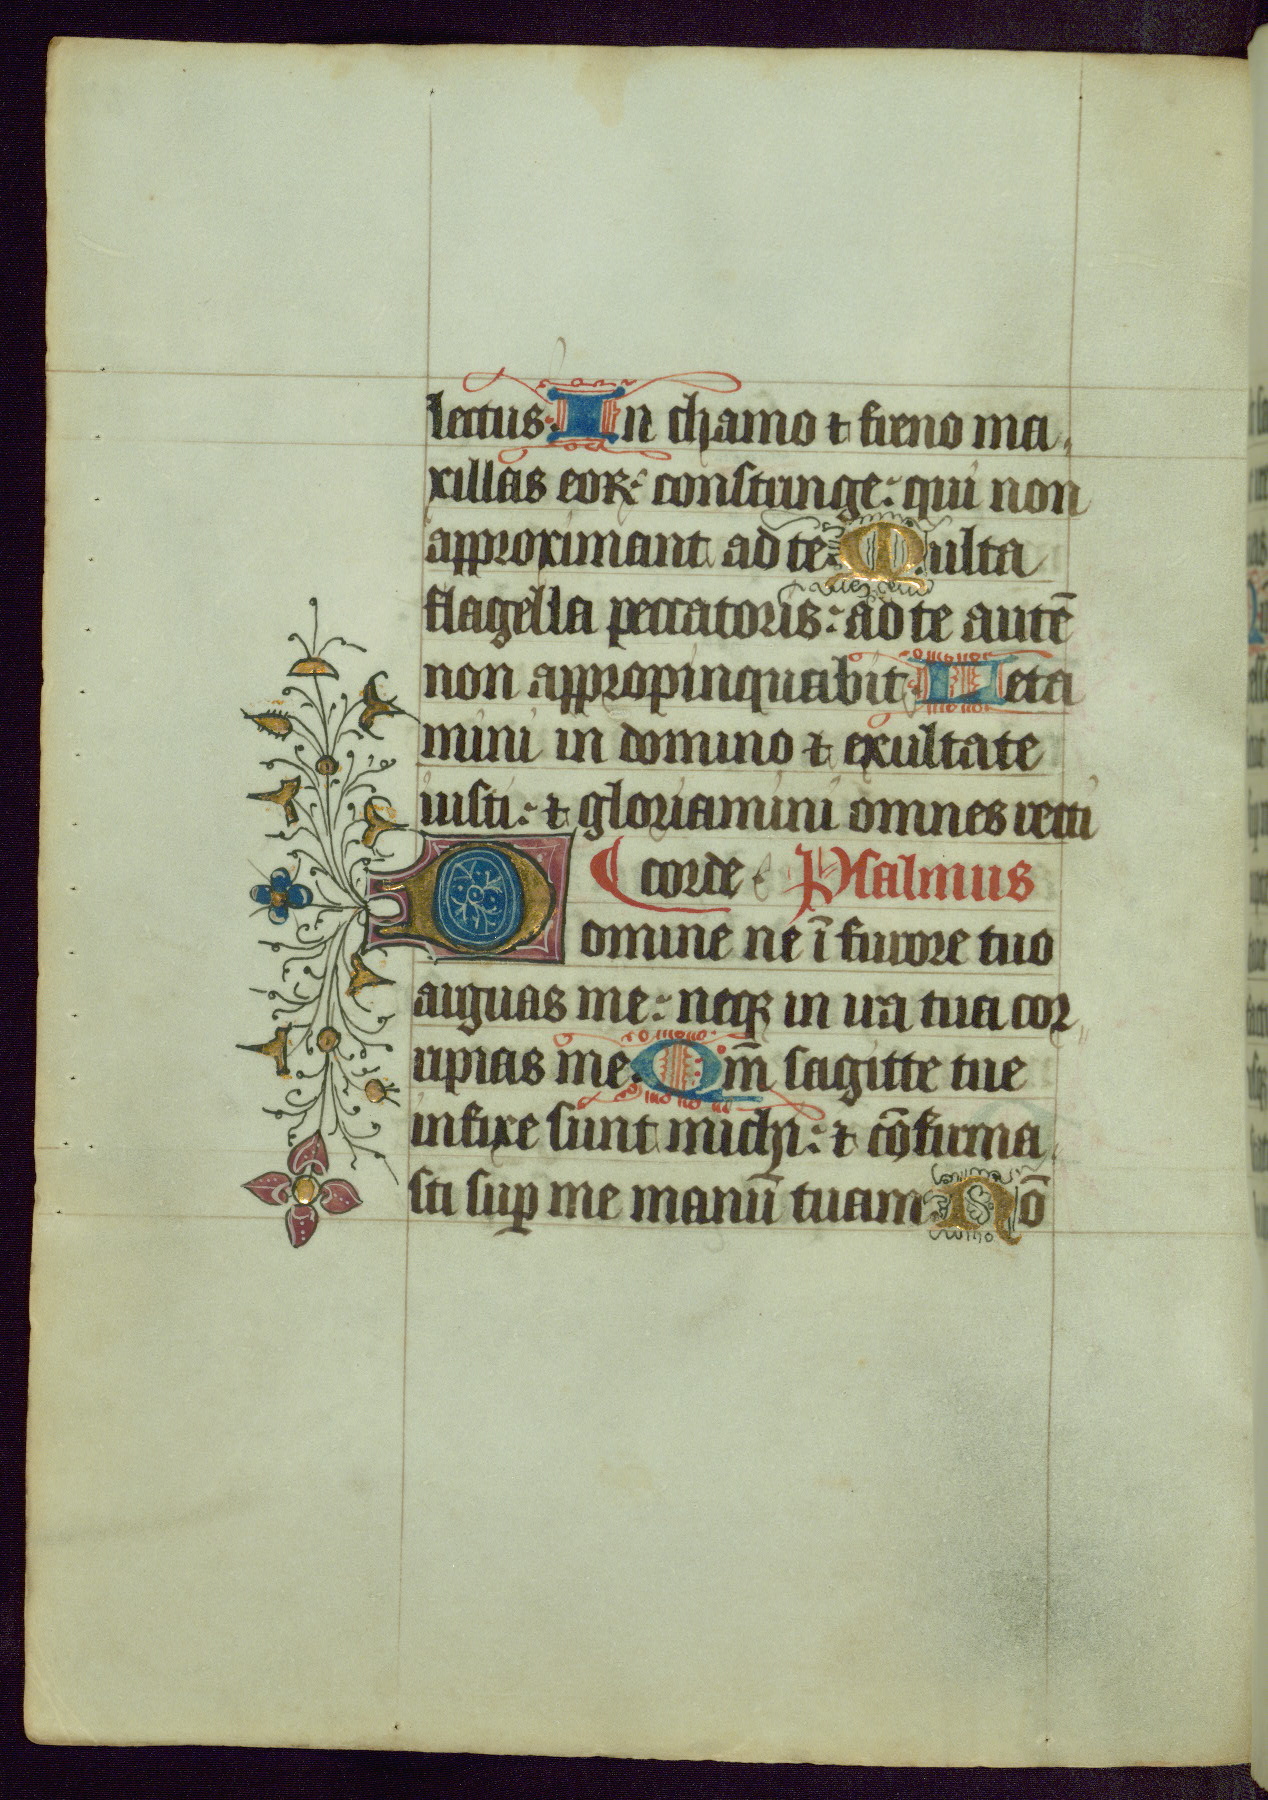 lectus. In chamo ⁊ freno ma
xillas eoꝝ constringe: qui non
approximant ad te. Multa
flagella peccatoris: ad te autē
non appropinquabit. Leta
mini in domino ⁊ exultate
iusti: ⁊ gloriamini omnes recti
corde Psalmus
Domine ne ī furore tuo
arguas me: neqꝫ in ira tua cor
ripias me. Qm̄ sagitte tue
infixe sunt michi: ⁊ cōfirma
sti suꝑ me manū tuam. Nō